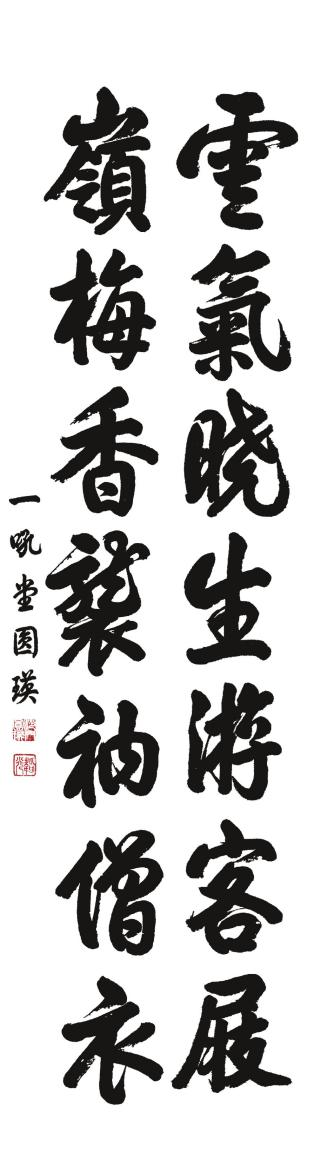 雲氣曉生游客屐
嶺梅香襲衲僧衣
一吼堂圆瑛